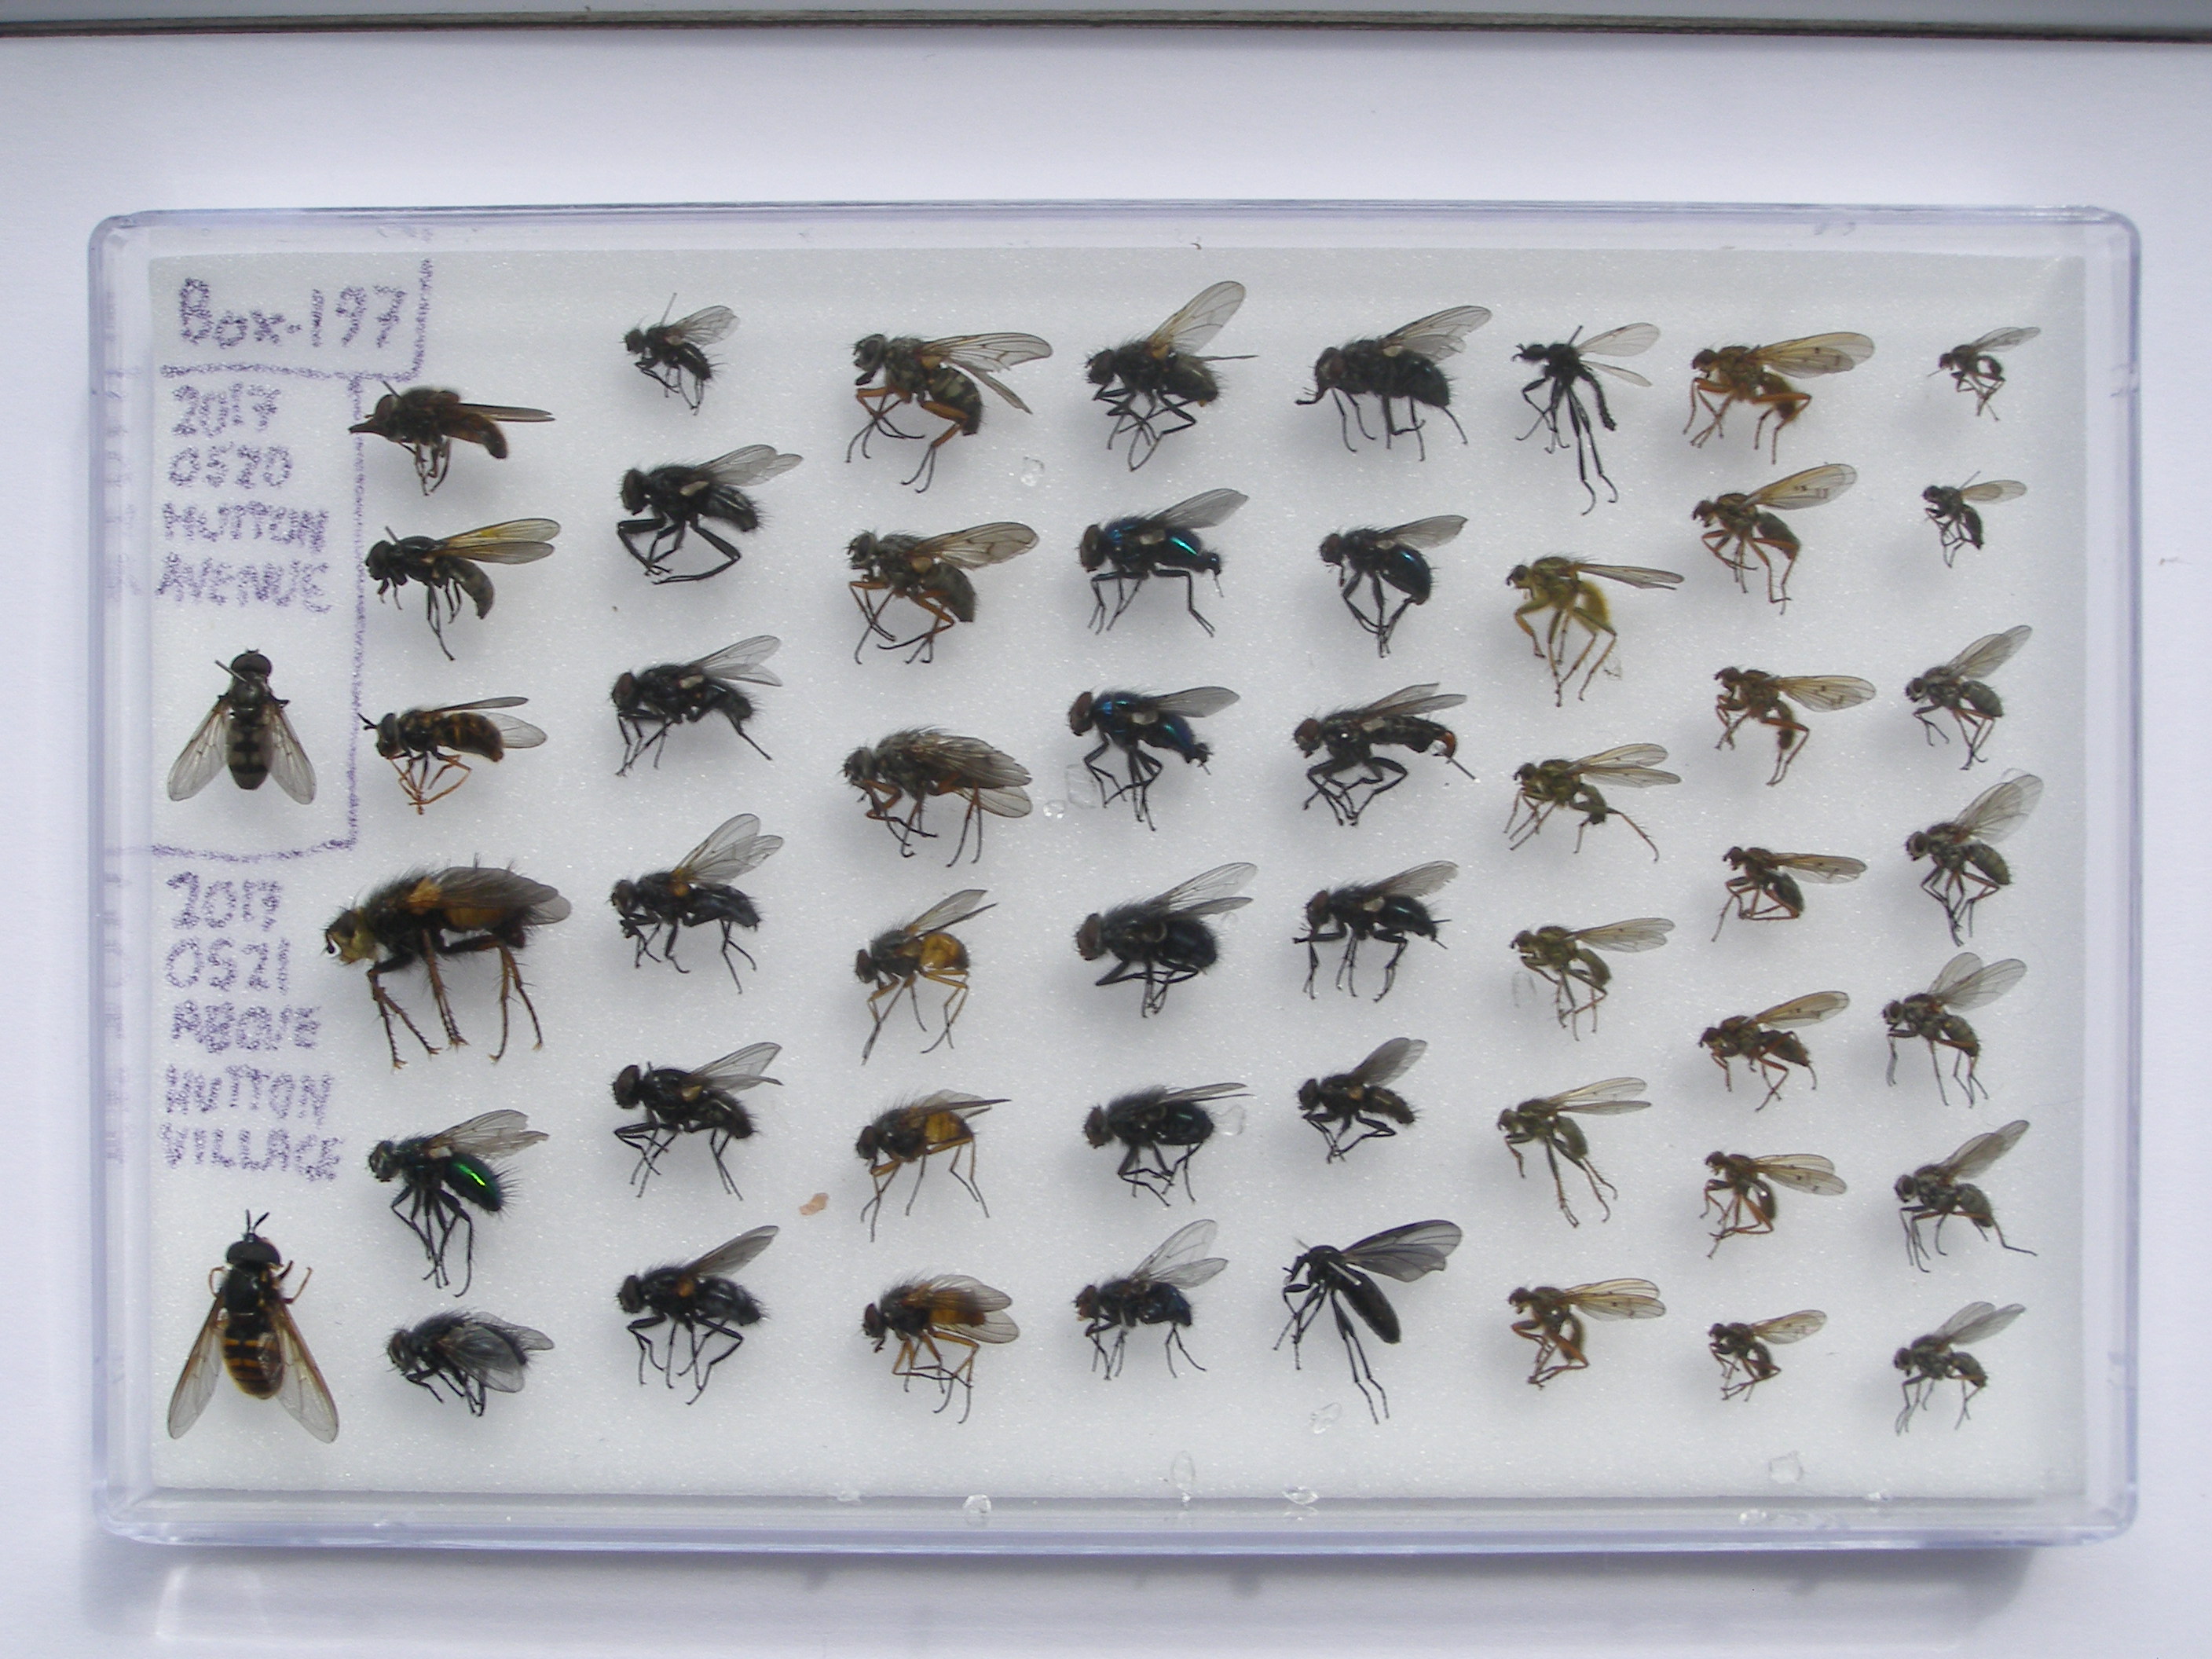 Box-197
2017
0520
HUTTON
AVENUE
2017
0521
ABOVE
HUTTON
VILLAGE